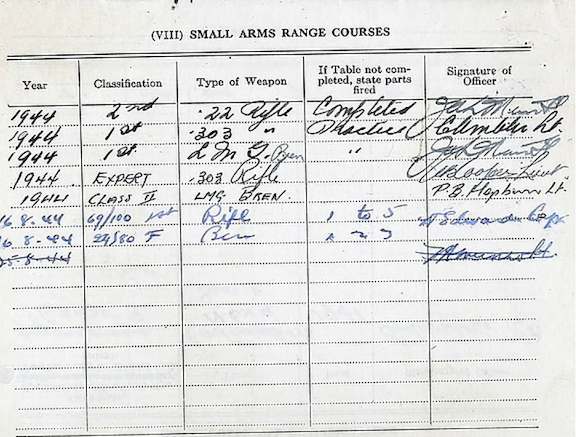 (VIII) SMALL ARMS RANGE COURSES
Year Classification Type of Weapon If Table not com-pleted, state parts fired Signature of Officer
1944 2nd .22 Rifle Completed
1944 1st .303 " Practice Lt.
1944 1st L M G. Bren "
1944 EXPERT .303 Rifle Cooper Lieut
1944 CLASS II LMG BREN. P.B. Hepburn Lt.
16.8.44 69/100 1st Rifle 1 to 5
16.8.44 F Bren
25.8.44